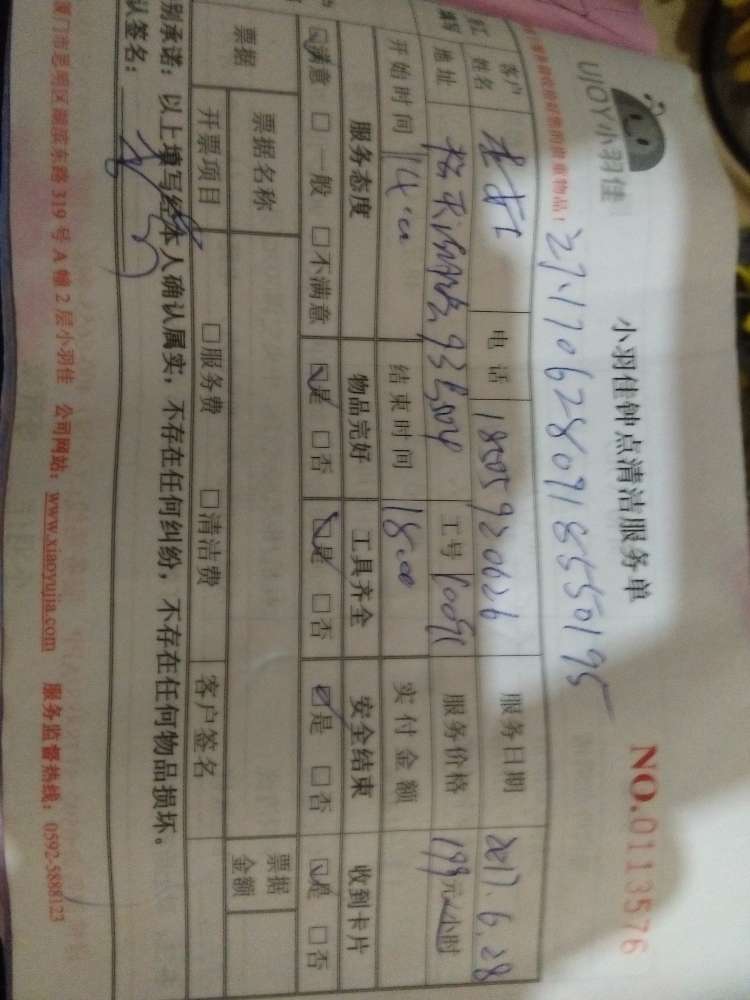 UJOY小羽佳
小羽佳钟点清洁服务单
NO.01113576
2717062809185550195
客户姓名 电话 18059220626 服务日期 2017.6.28
地址 工号 服务价格 198元/小时
开始时间 14:00 结束时间 18:00 实付金额
服务态度 物品完好 工具齐全 安全结束 收到卡片
☑满意 □一般 □不满意 ☑是 □否 ☑是 □否 ☑是 □否 ☑是 □否
票据 票据名称 票据金额
开票项目 □服务费 □清洁费 客户签名
别承诺：以上填写经本人确认属实，不存在任何纠纷，不存在任何物品损坏。
认签名：
厦门市思明区湖滨东路319号A幢2层小羽佳 公司网站：www.xiaoyujia.com 服务监督热线：0592-5888123